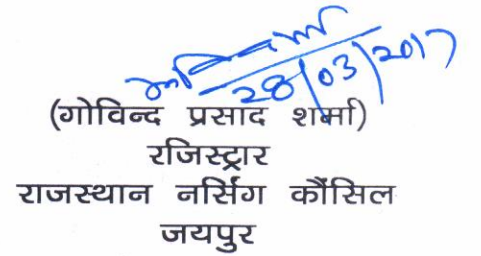 28/03/2017
(गोविन्द प्रसाद शर्मा)
रजिस्ट्रार
राजस्थान नर्सिंग कौंसिल
जयपुर